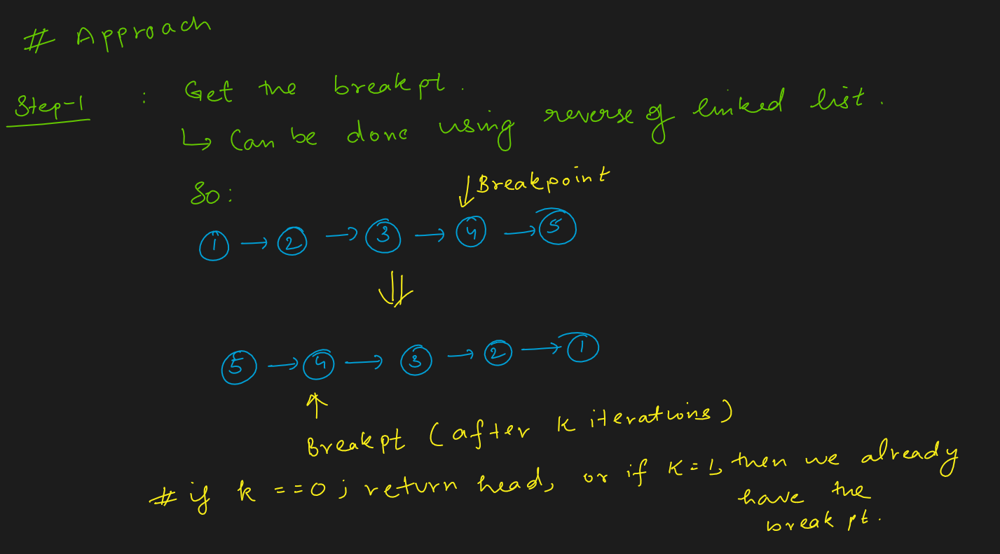 # Approach
Step-1 : Get the breakpt.
↳ Can be done using reverse of linked list.
So:
↓Breakpoint
1 → 2 → 3 → 4 → 5
⇓
5 → 4 → 3 → 2 → 1
↑
Breakpt (after K iterations)
# if k ==0 ; return head, or if K=1, then we already
have the
break pt.